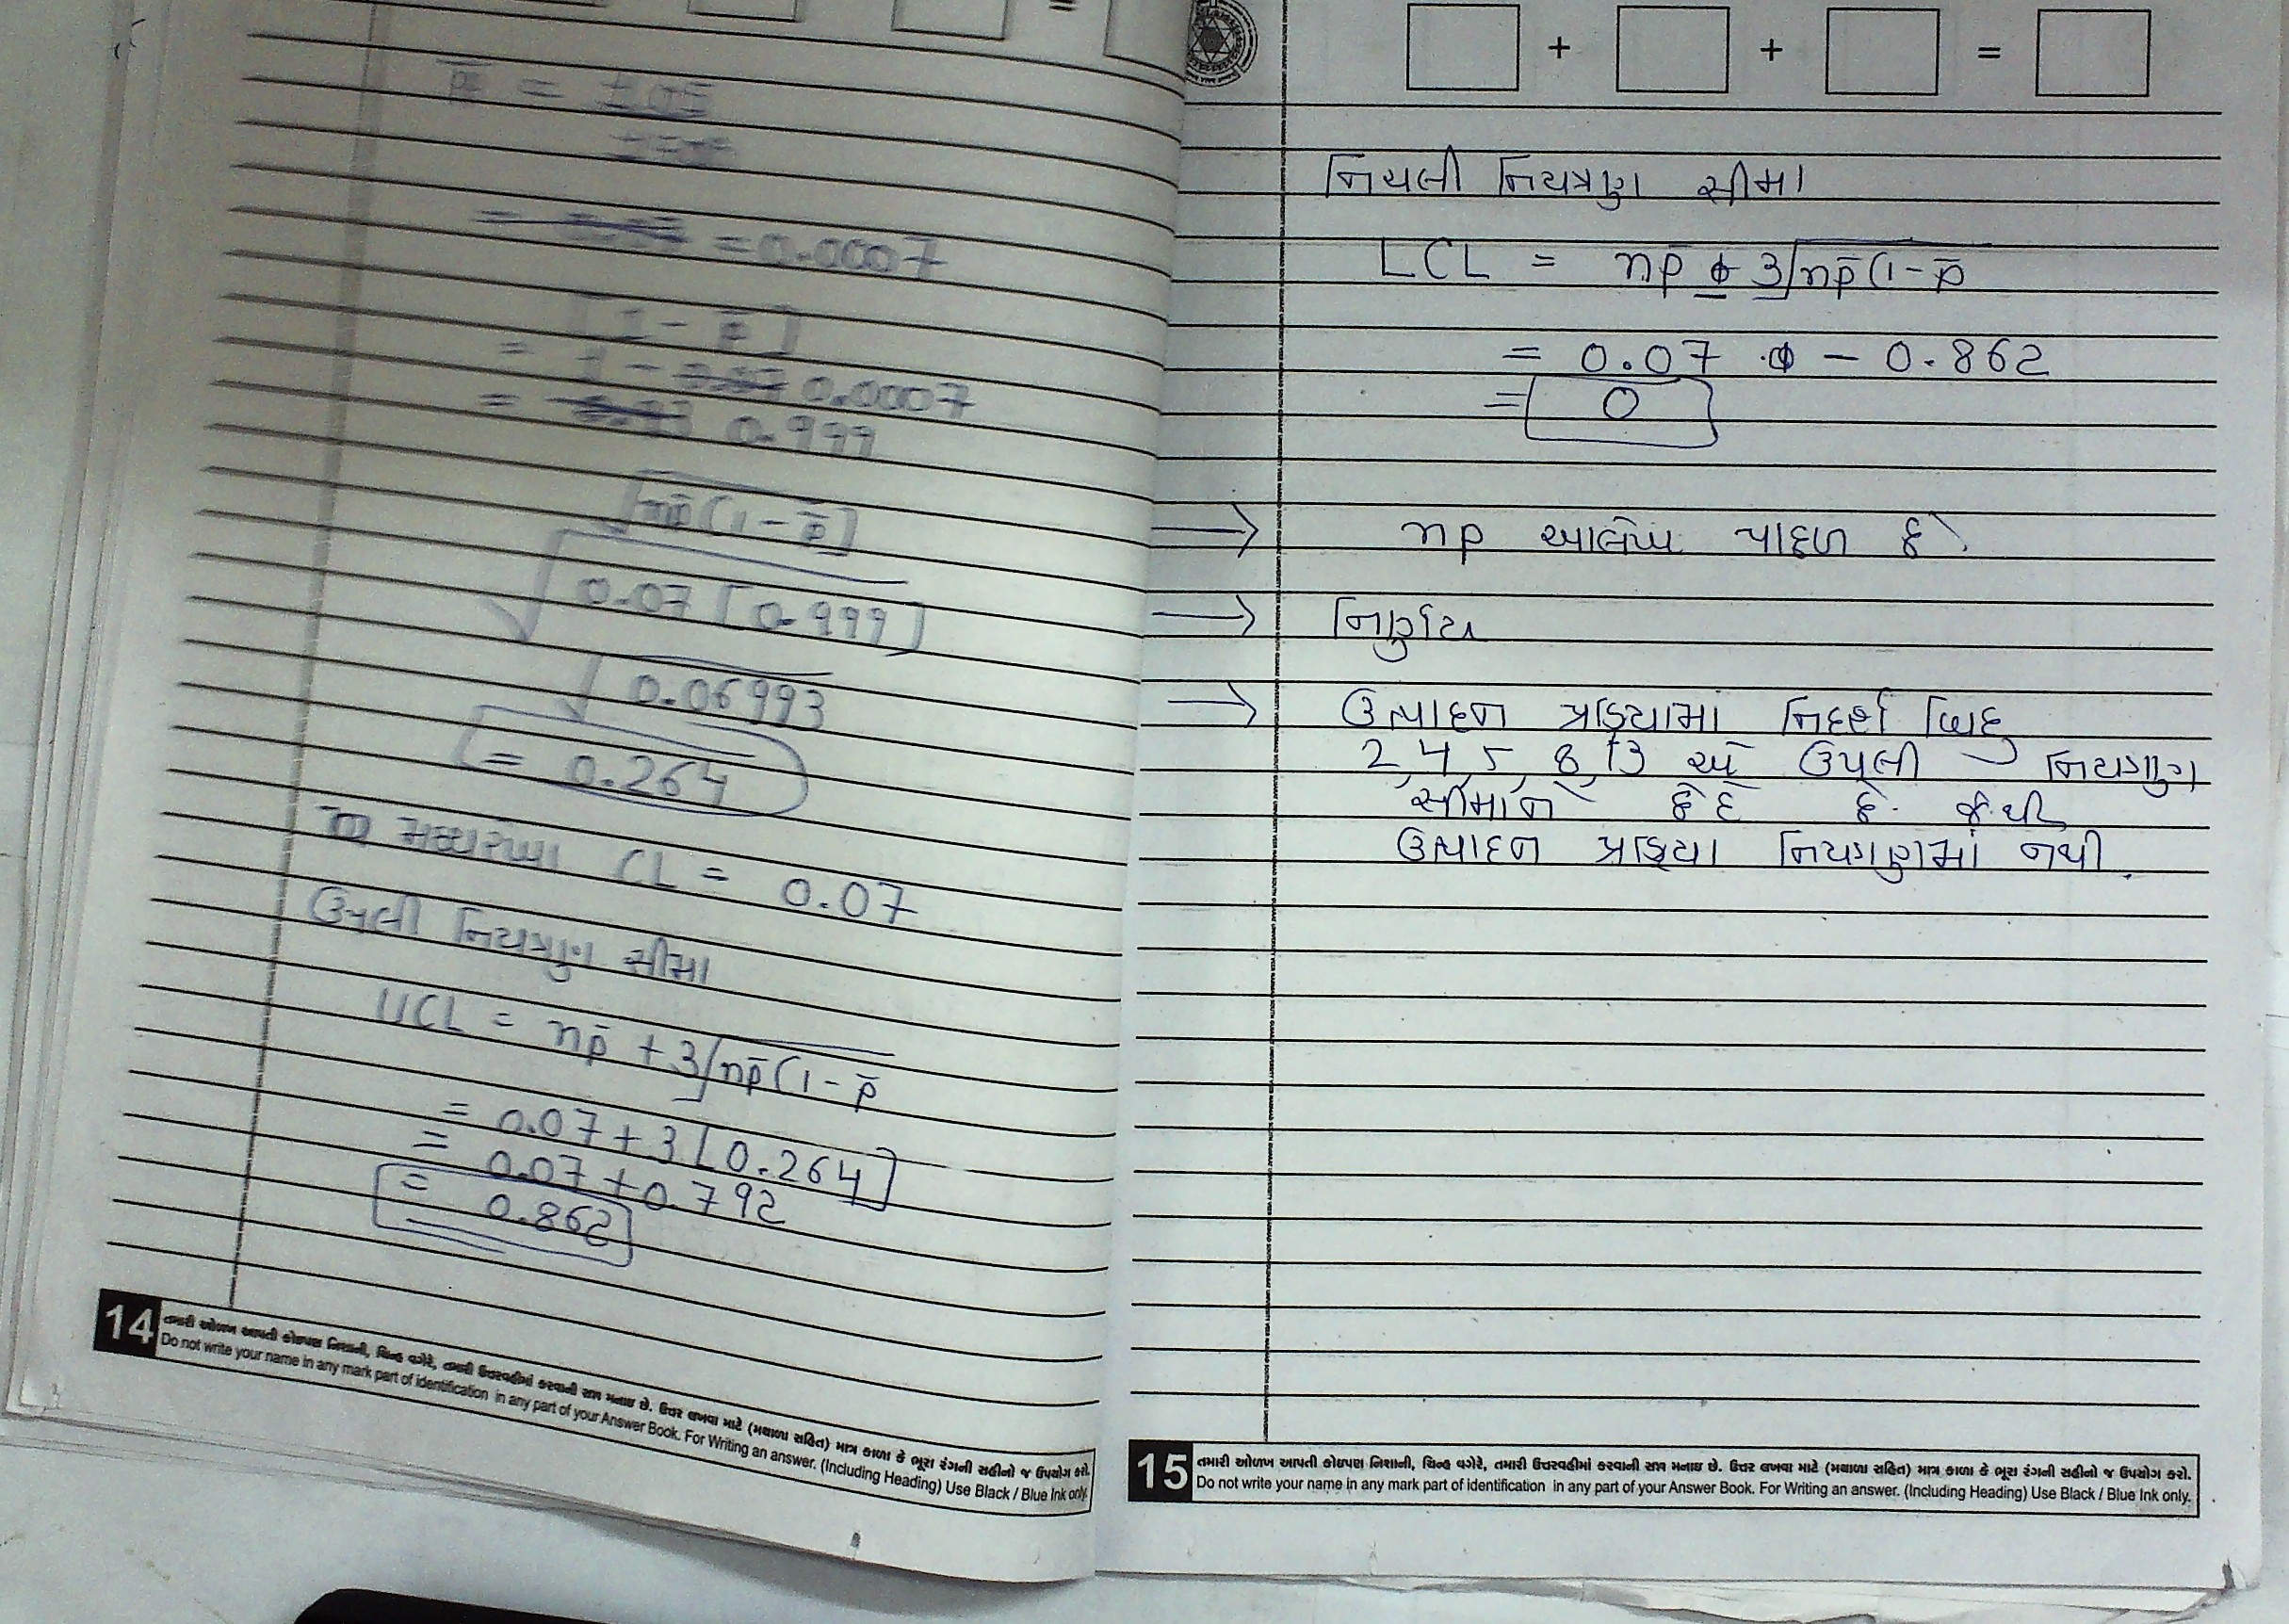 =
p̄ =
= 0.0007
[1 - p̄]
= 1 - 0.0007
= 0.999
√np̄(1-p̄]
√0.07[0.999]
√0.06993
= 0.264
મધ્યરેખા CL = 0.07
ઉપલી નિયત્રણ સીમા
UCL = np̄ + 3√np̄(1-p̄
= 0.07 + 3[0.264]
= 0.07 + 0.792
= 0.862
14 તમારી ઓળખ આપતી કોઇપણ નિશાની, ચિન્હ વગેરે, તમારી ઉત્તરવહીમાં કરવાની સખ્ત મનાઇ છે. ઉત્તર લખવા માટે (મથાળા સહિત) માત્ર કાળા કે ભૂરા રંગની સહીનો જ ઉપયોગ કરો.
Do not write your name in any mark part of identification in any part of your Answer Book. For Writing an answer. (Including Heading) Use Black / Blue Ink only.
+ + =
નિચલી નિયત્રણ સીમા
LCL = np̄ - 3√np̄(1-p̄
= 0.07 - 0.862
= 0
→ np આલેખ પાછળ છે.
→ નિર્ણય
→ ઉત્પાદન પ્રક્રિયામાં નિદર્શ બિંદુ
2, 4, 5, 8, 13 એ ઉપલી નિયત્રણ
સીમાને છેદે છે. જેથી
ઉત્પાદન પ્રક્રિયા નિયત્રણમાં નથી.
15 તમારી ઓળખ આપતી કોઇપણ નિશાની, ચિન્હ વગેરે, તમારી ઉત્તરવહીમાં કરવાની સખ્ત મનાઇ છે. ઉત્તર લખવા માટે (મથાળા સહિત) માત્ર કાળા કે ભૂરા રંગની સહીનો જ ઉપયોગ કરો.
Do not write your name in any mark part of identification in any part of your Answer Book. For Writing an answer. (Including Heading) Use Black / Blue Ink only.